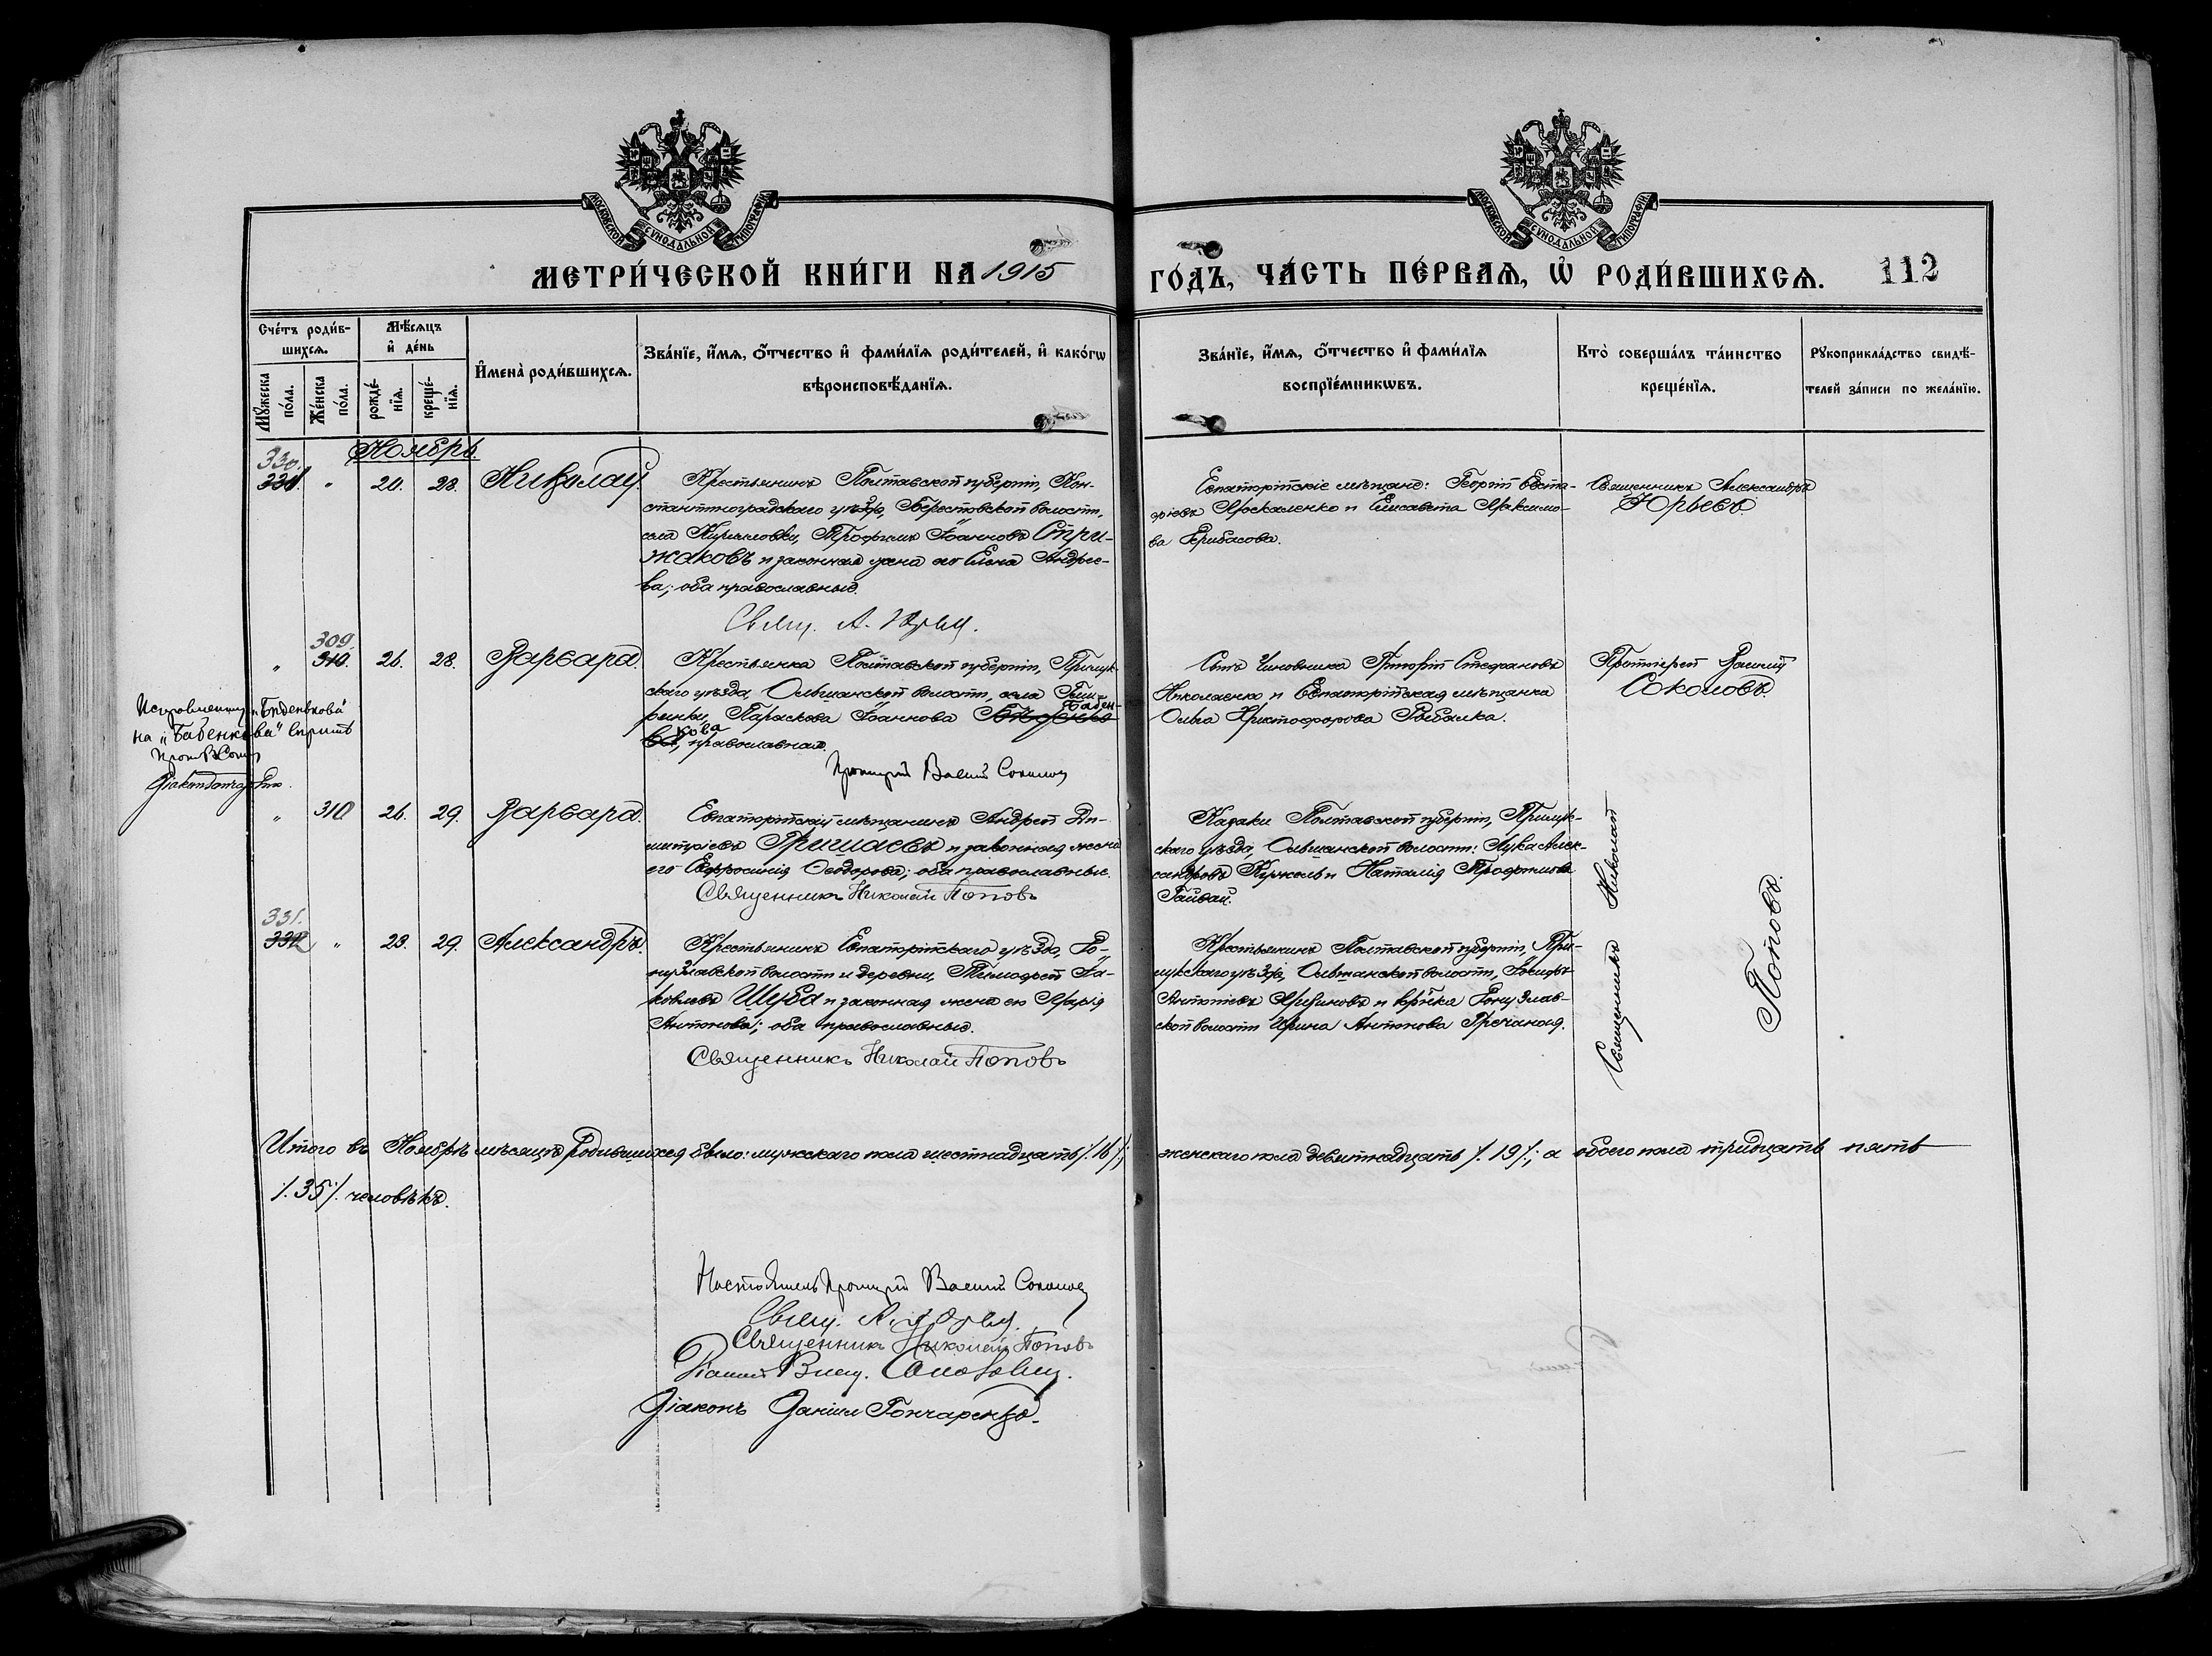 МОСКОВСКОЙ СѴНОДАЛЬНОЙ ТИПОГРАФІИ
МОСКОВСКОЙ СѴНОДАЛЬНОЙ ТИПОГРАФІИ
МЕТРИ́ЧЕСКОЙ КНИ́ГИ НА 1915
ГО́ДЪ, ЧА́СТЬ ПЕ́РВАѦ, Ѡ҆ РОДИ́ВШИХСѦ. 112
Сче́тъ роди́в-
шихсѧ.
Мꙋ́жеска по́ла.
Же́нска по́ла.
Мѣ́сѧцъ
и҆ де́нь
рожде́-
нїѧ.
креще́-
нїѧ.
И҆мена̀ роди́вшихсѧ.
Зва́нїе, и҆́мѧ, ѻ҆́тчество и҆ фами́лїѧ роди́телей, и҆ како́гѡ
вѣроисповѣ́данїѧ.
Зва́нїе, и҆́мѧ, ѻ҆́тчество и҆ фами́лїѧ
воспрїе́мникѡвъ.
Кто̀ соверша́лъ та́инство
креще́нїѧ.
Рꙋкоприкла́дство свидѣ́-
телей за́писи по жела́нїю.
Ноябрь.
330.
331. " 20. 28. Николай.
Крестьянинъ Полтавской губерніи, Кон-
стантиноградскаго уѣзда, Берестовской волости,
села Кирилловки, Трофимъ Іоанновъ Стри-
жаковъ и законная жена его Елена Андрее-
ва; оба православные.
Свящ. А. Юрьев.
Евпаторійскіе мѣщане: Георгій Евста-
фіевъ Москаленко и Елисавета Максимо-
ва Грибасова.
Священникъ Александръ
Юрьевъ.
309.
" 310. 26. 28. Варвара.
Крестьянка Полтавской губерніи, Прилук-
скаго уѣзда, Ольшанской волости, села
Параскева Іоаннова Бабен-
кова, православная.
Протоіерей Василій Соколов
Сынъ чиновника Стефановъ
Николаенко и Евпаторійская мѣщанка
Ольга Христофорова Рыбалка.
Протоіерей Василій
Соколовъ.
на „Бабенкова" вѣрить
" 310 26. 29. Варвара.
Евпаторійскій мѣщанинъ Андрей Ди-
митріевъ Гришаевъ и законная жена
его Евфросинія Ѳеодорова; оба православные.
Священникъ Николай Поповъ
Казаки Полтавской губерніи, Прилук-
скаго уѣзда, Ольшанской волости: Лука Алек-
сандровъ и Наталія Трофимова
Гайвай.
331.
332 " 23. 29. Александръ.
Крестьянинъ Евпаторійскаго уѣзда, До-
нузлавской волости и деревни, Тимофей Іа-
ковлевъ Щерба и законная жена его Марія
Антонова; оба православные.
Священникъ Николай Поповъ
Крестьянинъ Полтавской губерніи, При-
лукскаго уѣзда, Ольшанской волости,
Антоніевъ и Донузлав-
ской волости Ирина Антонова Гречаная.
Священникъ Николай
Поповъ.
Итого въ Ноябрѣ мѣсяцѣ родившихся было: мужскаго пола шестнадцать /.16/.; женскаго пола девятнадцать /.19/.; а обоего пола тридцать пять
/.35/. человѣкъ.
Настоятель Протоіерей Василій Соколов
Свящ. А. Юрьев.
Священникъ Николай Поповъ
Діаконъ Даніил Гончаренко.